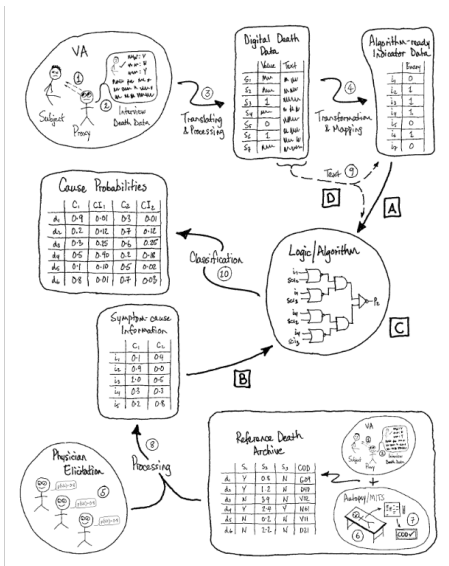 VA
1
2
Subject
Proxy
Interview
Death Data
3
Translating
& Processing
Digital Death
Data
Value Text
S₁
S₂
S₃ 1
S₄
S₅ 0
S₆ 1
4
Transformation
& Mapping
Algorithm-ready
Indicator Data
Binary
0
1
1
0
1
1
0
Text 9
D
A
Cause Probabilities
C₁ CI₁ C₂ CI₂
d₁ 0.9 0.01 0.3 0.01
d₂ 0.2 0.12 0.7 0.12
d₃ 0.3 0.25 0.6 0.25
d₄ 0.5 0.40 0.2 0.18
d₅ 0.1 0.10 0.5 0.02
d₆ 0.8 0.01 0.7 0.03
Classification
10
Logic/Algorithm
C
Symptom-cause
Information
C₁ C₂
i₁ 0.1 0.4
i₂ 0.9 0.0
i₃ 1.0 0.5
i₄ 0.3 0.3
i₅ 0.2 0.8
B
8
Processing
Physician
Elicitation
5
Reference Death
Archive
S₁ S₂ S₃ COD
d₁ Y 0.8 N
d₂ Y 1.2 N
d₃ N 3.9 N
d₄ Y 2.4 Y
d₅ N 0.2 N
d₆ N 2.2 N
VA
Subject
Proxy
Interview
Death Data
Autopsy/MITS
6
7
COD ✓